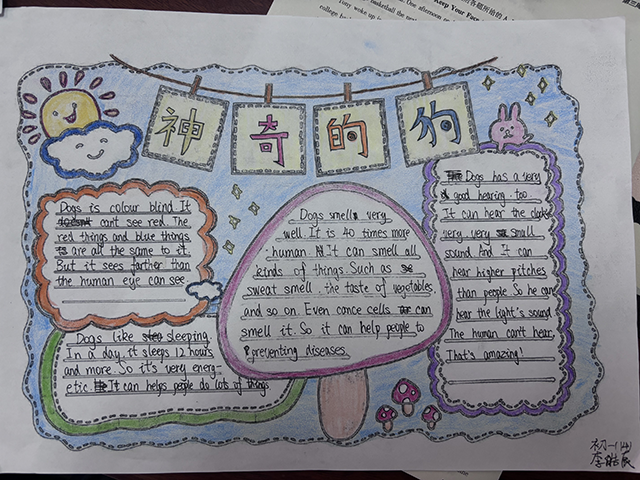 神奇的狗
Dogs is colour blind It
can't see red. The
red things and blue things
are all the same to it.
But it sees farther than
the human eye can see
Dogs like sleeping
In a day it sleeps 12 hours
and more. So it's very energ-
etic It can helps people do lots of things
Dogs smell very
well. It is 40 times more
human It can smell all
kinds of things. Such as
sweat smell, the taste of vegetables
and so on. Even cance cells can
smell it. So it can help people to
preventing diseases.
Dogs has a very
good hearing too
It can hear the
very very small
sound And It can
hear higher pitches
than people. So he can
hear the light's sound
The human can't hear.
That's amazing!
初一(14)
李
Keep Your Face